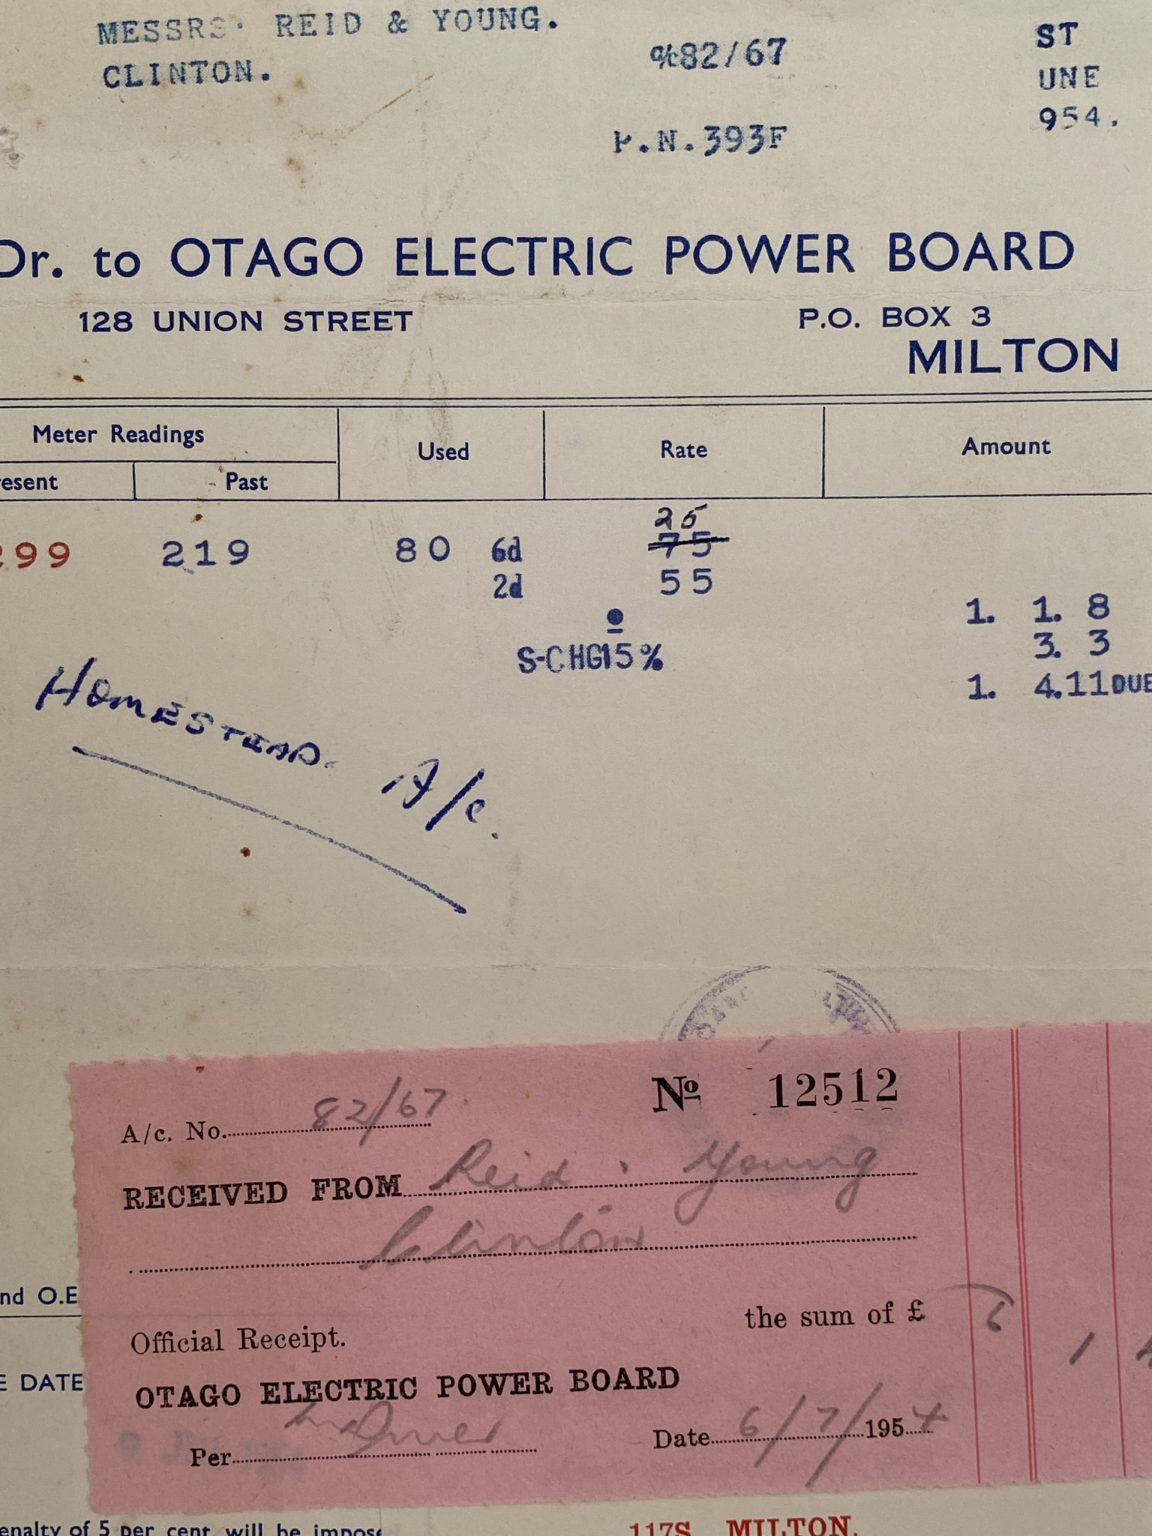 MESSRS. REID & YOUNG.
CLINTON.
82/67
P.N.393F
ST
UNE
954.
Dr. to OTAGO ELECTRIC POWER BOARD
128 UNION STREET P.O. BOX 3
MILTON
Meter Readings Used Rate Amount
esent Past
25
299 219 80 6d 75
2d 55
1. 1. 8
S-CHG15% 3. 3
1. 4.11DUE
HOMESTEAD. A/c.
No 12512
A/c. No. 82/67
RECEIVED FROM Reid & Young
Clinton
nd O.E
the sum of £ 6 1
Official Receipt.
E DATE
OTAGO ELECTRIC POWER BOARD
Per Date 6/7/1954
enalty of 5 per cent. will be impose
117S MILTON.